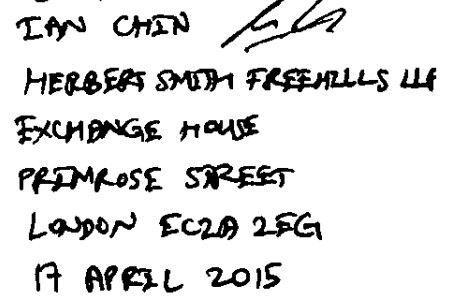 IAN CHIN
HERBERT SMITH FREEHILLS LLP
EXCHANGE HOUSE
PRIMROSE STREET
LONDON EC2A 2EG
17 APRIL 2015